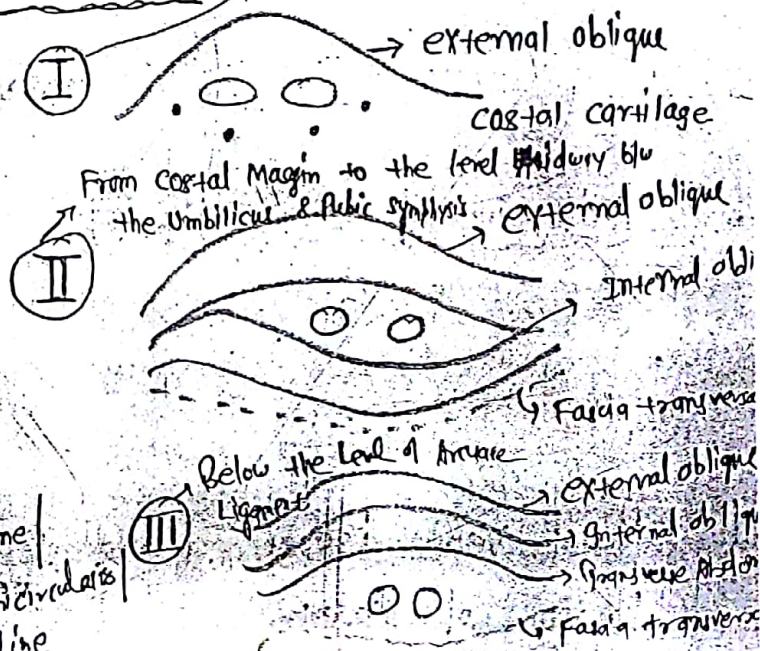 I
external oblique
costal cartilage
From Costal Margin to the level Midway b/w
the Umbilicus & Pubic Symphysis
II
external oblique
Internal obli
Fascia transversa
Below the Level of Arcuate
Ligament
III
external oblique
Internal obliqu
Transverse Abdom
Fascia transvers
ne
icircularis
line